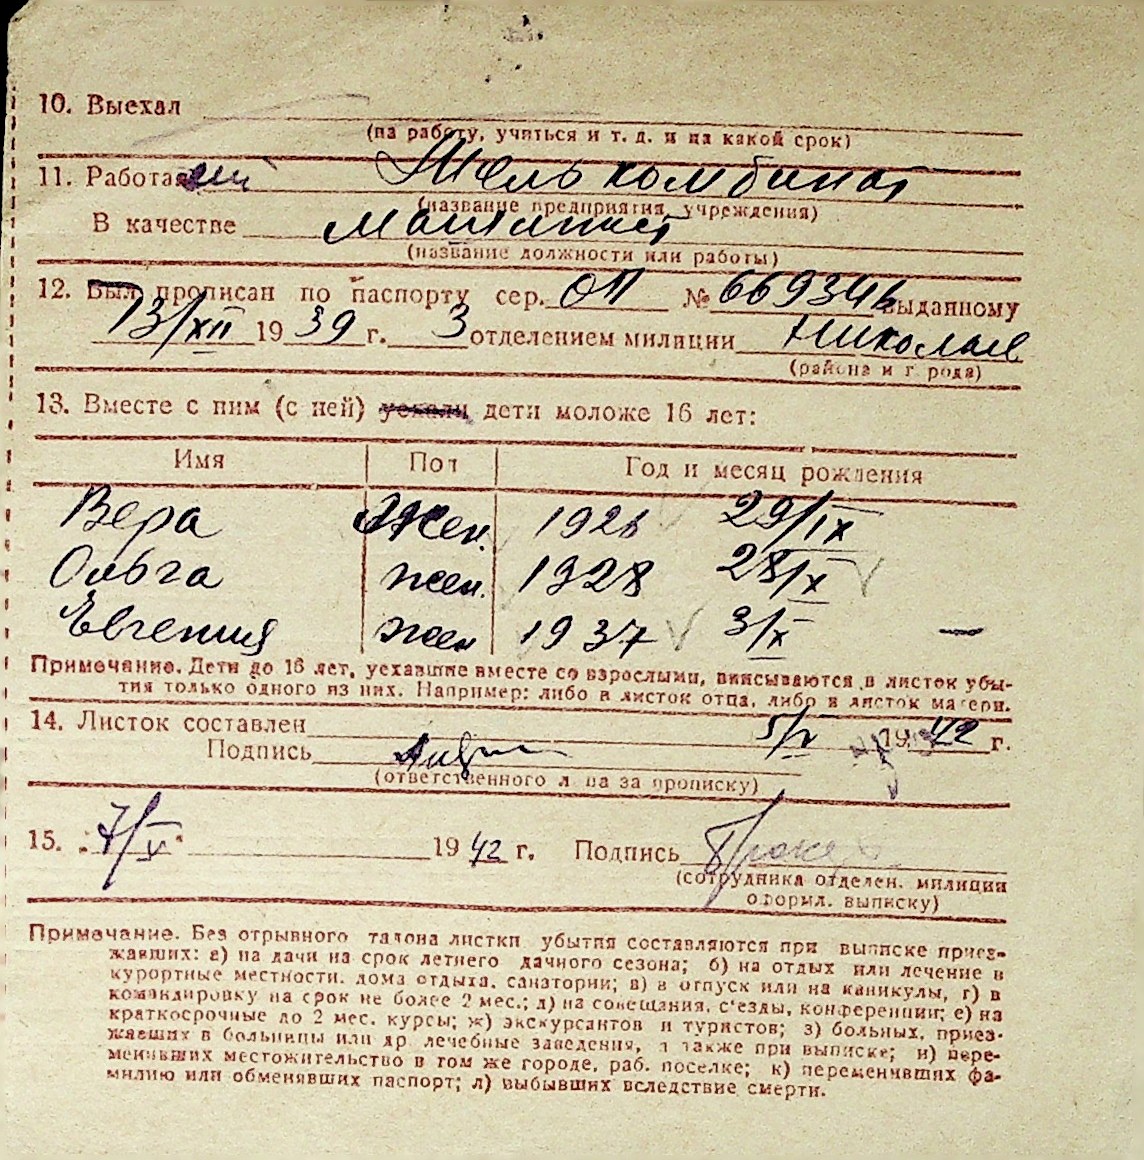 10. Выехал
(на работу, учиться и т. д. и на какой срок)
11. Работа Мелькомбинат
(название предприятия, учреждения)
В качестве Машинист
(название должности или работы)
12. Был прописан по паспорту сер. ОП № 669346 выданному
13/XII 1939 г. 3 отделением милиции Николаев
(района и г рода)
13. Вместе с ним (с ней) уехали дети моложе 16 лет:
Имя Пол Год и месяц рождения
Вера Жен. 1926 29/IX
Ольга жен. 1928 28/X
Евгения жен 1937 3/X —
Примечание. Дети до 16 лет, уехавшие вместе со взрослыми, вписываются в листок убы-
тия только одного из них. Например: либо в листок отца, либо в листок матери.
14. Листок составлен 5/V 1942 г.
Подпись
(ответственного л ца за прописку)
15. "7/V" 1942 г. Подпись
(сотрудника отделен. милиции
оформл. выписку)
Примечание. Без отрывного талона листки убытия составляются при выписке приез-
жавших: а) на дачи на срок летнего дачного сезона; б) на отдых или лечение в
курортные местности, дома отдыха, санатории; в) в отпуск или на каникулы, г) в
командировку на срок не более 2 мес.; д) на совещания, с'езды, конференции; е) на
краткосрочные до 2 мес. курсы; ж) экскурсантов и туристов; з) больных, приез-
жавших в больницы или др лечебные заведения, а также при выписке; и) пере-
менивших местожительство в том же городе, раб. поселке; к) переменивших фа-
милию или обменявших паспорт; л) выбывших вследствие смерти.